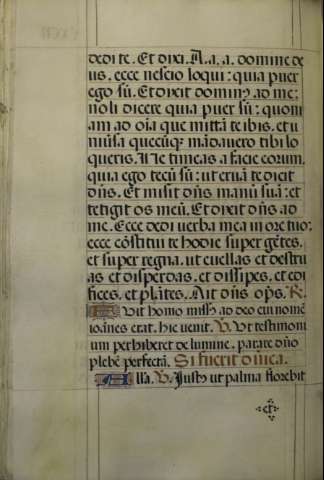 dedi te. Et dixi. A, a, a, domine de
us, ecce nescio loqui: quia puer
ego sū. Et dixit dominꝰ ad me:
noli dicere quia puer sū: quoni
am ad oīa que mittā te ibis, et u
niūsa quecūqꝫ mādauero tibi lo
queris. Ne timeas a facie eorum,
quia ego tecū sū: ut eruā te dicit
dn̄s. Et misit dn̄s manū suā: et
tetigit os meū. Et dixit dn̄s ad
me. Ecce dedi verba mea in ore tuo:
ecce cōstitui te hodie super gētes,
et super regna, ut euellas et destru
as et disperdas, et dissipes, et edi
fices, et plātes. Ait dn̄s op̄s. ℟.
Fuit homo missꝰ ad deo cui nomē
ioānes erat. hic uenit. ℣. Ut testimoni
um perhiberet de lumine, parare dn̄o
plebē perfectā. Si fuerit dn̄ica.
Alla. ℣. Justꝰ ut palma florebit